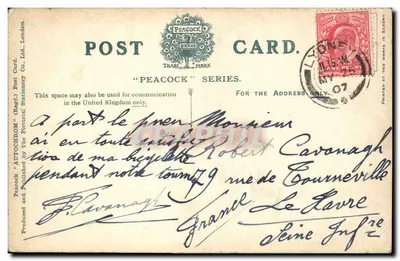 POST CARD.
PEACOCK
TRADE MARK
"PEACOCK" SERIES.
This space may also be used for communication
in the United Kingdom only.
FOR THE ADDRESS ONLY.
Peacock "AUTOCHROM" (Regd.) Post Card.
Produced and Published by The Pictorial Stationery Co., Ltd., London.
PRINTED AT THE WORKS IN SAXONY
MY 25
07
à part le pneu
ai eu toute satisfac
tion de ma bicyclette
pendant notre tour
Monsieur
Robert Cavanagh
79 rue de Tourneville
Le Havre
Seine Infre
France
Cavanagh